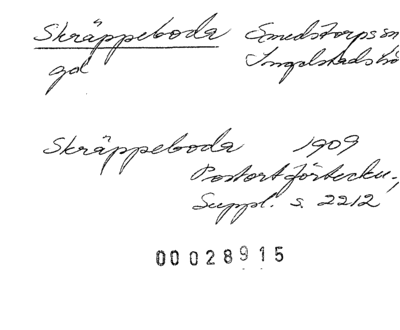 Skräppeboda Smedstorps sn
gd Ingelstads hd
Skräppeboda 1909
Postortförteckn.,
Suppl. s. 2212
00028915